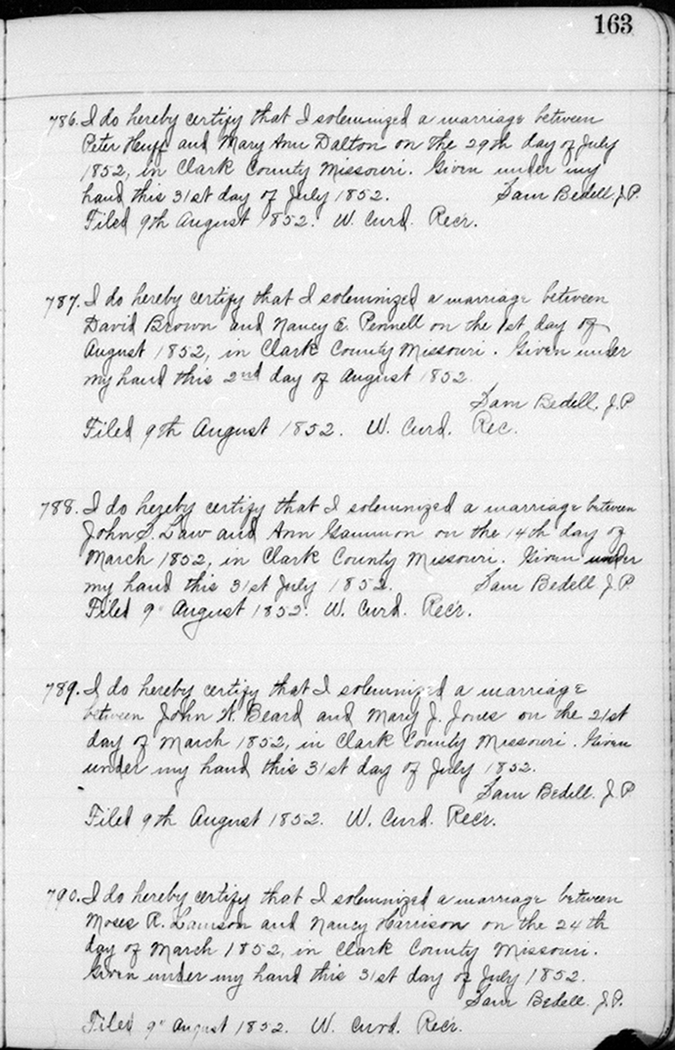 163
786. I do hereby certify that I solemnized a marriage between
Peter Huff and Mary Ann Dalton on the 29th day of July
1852, in Clark County Missouri. Given under my
hand this 31st day of July 1852. Sam Bedell, J.P.
Filed 9th August 1852. W. Curd. Recr.
787. I do hereby certify that I solemnized a marriage between
David Brown and Nancy E. Pennell on the 1st day of
August 1852, in Clark County Missouri. Given under
my hand this 2nd day of August 1852.
Sam Bedell. J.P.
Filed 9th August 1852. W. Curd. Rec.
788. I do hereby certify that I solemnized a marriage between
John S. Law and Ann Gammon on the 14th day of
March 1852, in Clark County Missouri. Given under
my hand this 31st July 1852. Sam Bedell J.P.
Filed 9" August 1852. W. Curd. Recr.
789. I do hereby certify that I solemnized a marriage
between John Beard and Mary J. Jones on the 21st
day of March 1852, in Clark County Missouri. Given
under my hand this 31st day of July 1852.
Sam Bedell. J.P.
Filed 9th August 1852. W. Curd. Recr.
790. I do hereby certify that I solemnized a marriage between
Moses R. Lawson and Nancy Harrison on the 24th
day of March 1852, in Clark County Missouri.
Given under my hand this 31st day of July 1852.
Sam Bedell. J.P.
Filed 9" August 1852. W. Curd. Recr.